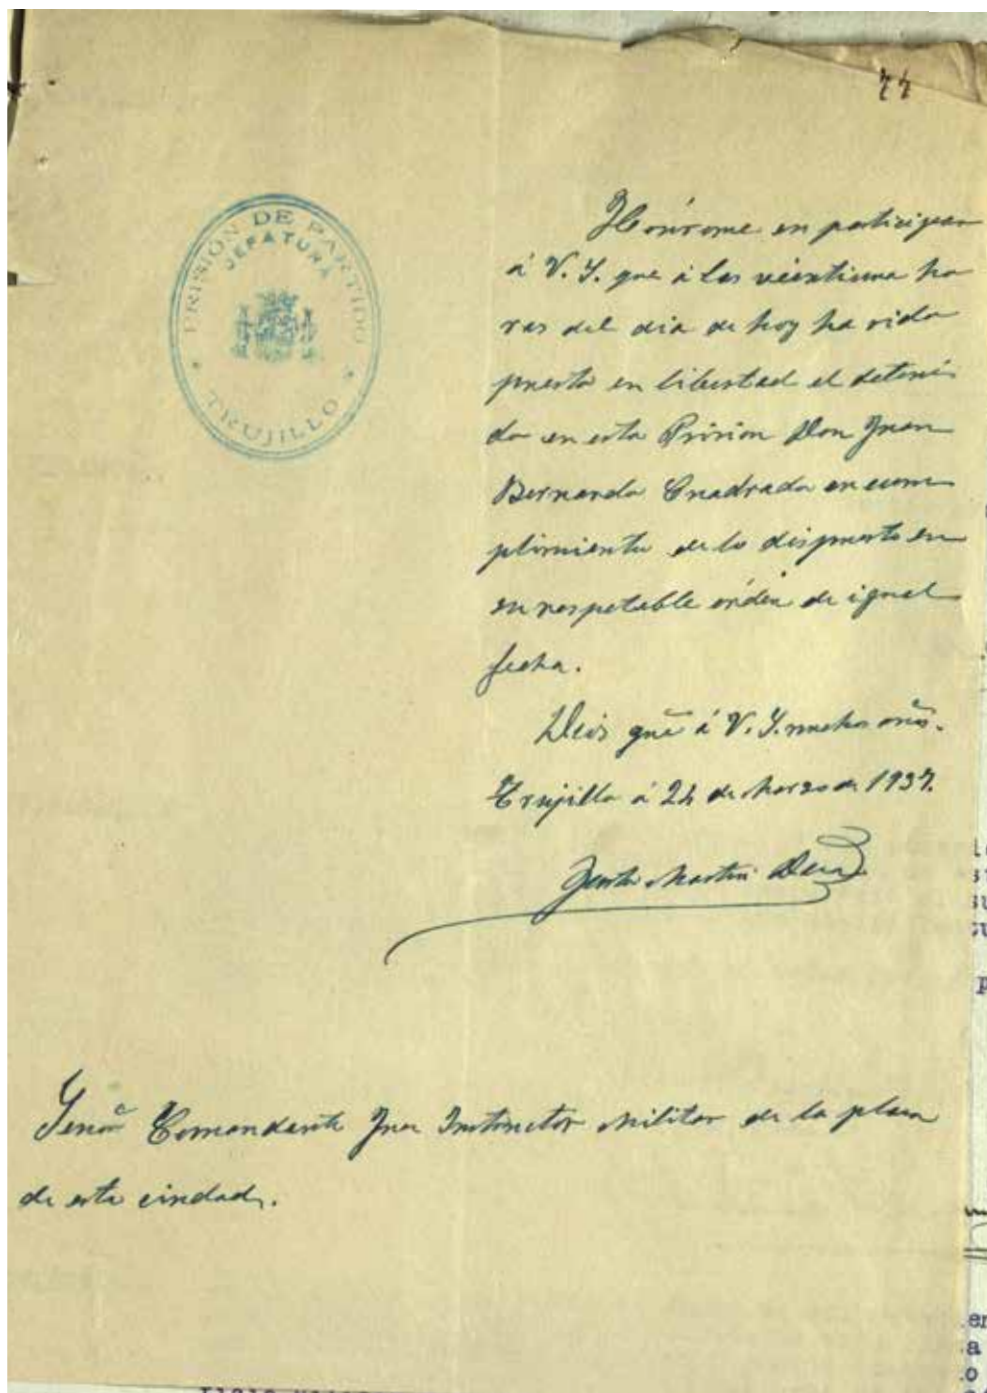 44
PRISIÓN DE PARTIDO
JEFATURA
TRUJILLO
Hónrome en participar
á V. S. que á las veintiuna ho
ras del dia de hoy ha sido
puesto en libertad el deteni
do en esta Prision Don Juan
Bernardo Cuadrado en cum
plimiento de lo dispuesto en
su respetable orden de igual
fecha.
Dios gue á V. S. muchos años.
Trujillo á 24 de Marzo de 1937.
Martin
Señor Comandante Juez Instructor Militar de la plaza
de esta ciudad.